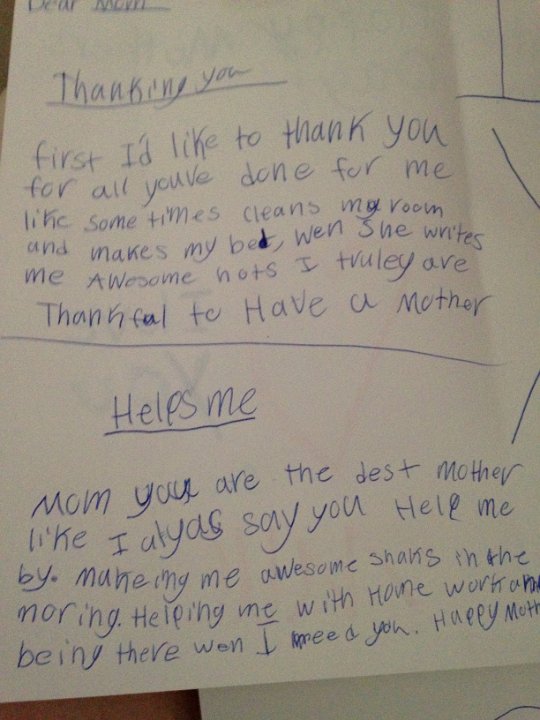 Dear Mom
Thanking you
first I'd like to thank you
for all youve done for me
like some times cleans my room
and makes my bed, wen she writes
me Awesome nots I truley are
Thankful to Have a Mother
Helps me
Mom you are the dest mother
like I alyas say you Help me
by. makeing me awesome snaks in the
moring. Helping me with Home work and
being there wen I need you. Happy Moth